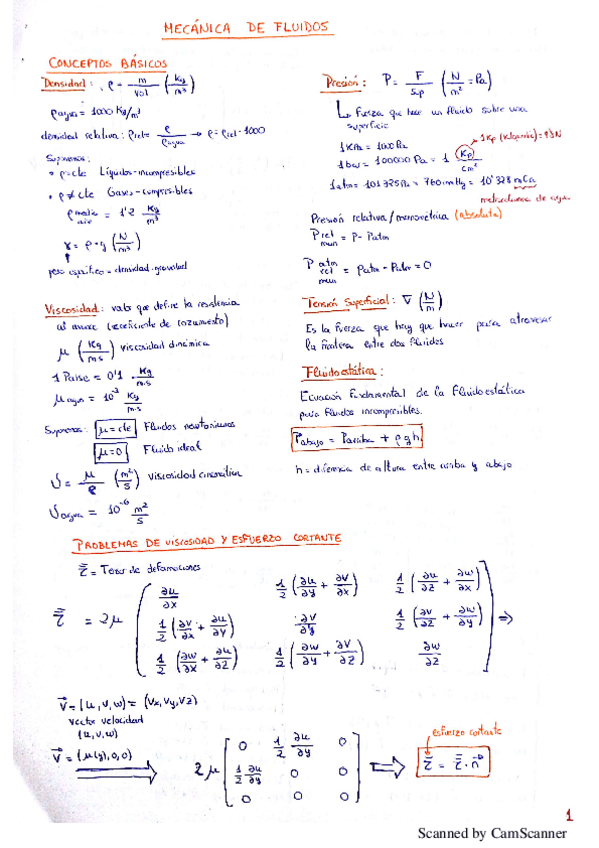 MECÁNICA DE FLUIDOS
CONCEPTOS BÁSICOS
Densidad: ρ = m/vol (Kg/m³)
ρagua = 1000 Kg/m³
densidad relativa: ρrel = ρ/ρagua → ρ = ρrel · 1000
Supone
• ρ = cte Líquidos - incompresibles
• ρ ≠ cte Gases - compresibles
ρ aire = 1'2 Kg/m³
γ = ρ · g (N/m³)
peso específico = densidad · gravedad
Viscosidad: valor que define la resistencia
al
μ (Kg/m·s) viscosidad dinámica
1 Poise = 0'1 Kg/m·s
μagua = 10⁻³ Kg/m·s
μ = cte Fluidos newtonianos
μ = 0 Fluido ideal
υ = μ/ρ (m²/s) viscosidad cinemática
υagua = 10⁻⁶ m²/s
Presión: P = F/Sup (N/m² = Pa)
Fuerza que hace un fluido sobre una
superficie
1 KPa = 1000 Pa
1 Kp (Kilopondio) = 9'8 N
1 bar = 100000 Pa = 1 Kp/cm²
1 atm = 101325 Pa = 760 mmHg = 10'328 mca
metros de agua
Presión relativa / manométrica (absoluta)
P rel man = P - Patm
P atm rel man = Patm - Patm = 0
Tensión Superficial: σ (N/m)
Es la fuerza que hay que hacer para atravesar
la frontera entre dos fluidos
Fluidoestática:
Ecuación Fundamental de la Fluidoestática
para fluidos incompresibles.
Pabajo = Parriba + ρgh
h = diferencia de altura entre arriba y abajo
PROBLEMAS DE VISCOSIDAD Y ESFUERZO CORTANTE
τ̿ = Tensor de deformaciones
τ̿ = 2μ
∂u/∂x 1/2 (∂u/∂y + ∂v/∂x) 1/2 (∂u/∂z + ∂w/∂x)
1/2 (∂v/∂x + ∂u/∂y) ∂v/∂y 1/2 (∂v/∂z + ∂w/∂y) ⇒
1/2 (∂w/∂x + ∂u/∂z) 1/2 (∂w/∂y + ∂v/∂z) ∂w/∂z
v⃗ = (u, v, w) = (Vx, Vy, Vz)
vector velocidad
(u, v, w)
v⃗ = (μ(y), 0, 0)
2μ
0 1/2 ∂u/∂y 0
1/2 ∂u/∂y 0 0
0 0 0
esfuerzo cortante
τ̄ = τ̿ · n⃗
1
Scanned by CamScanner